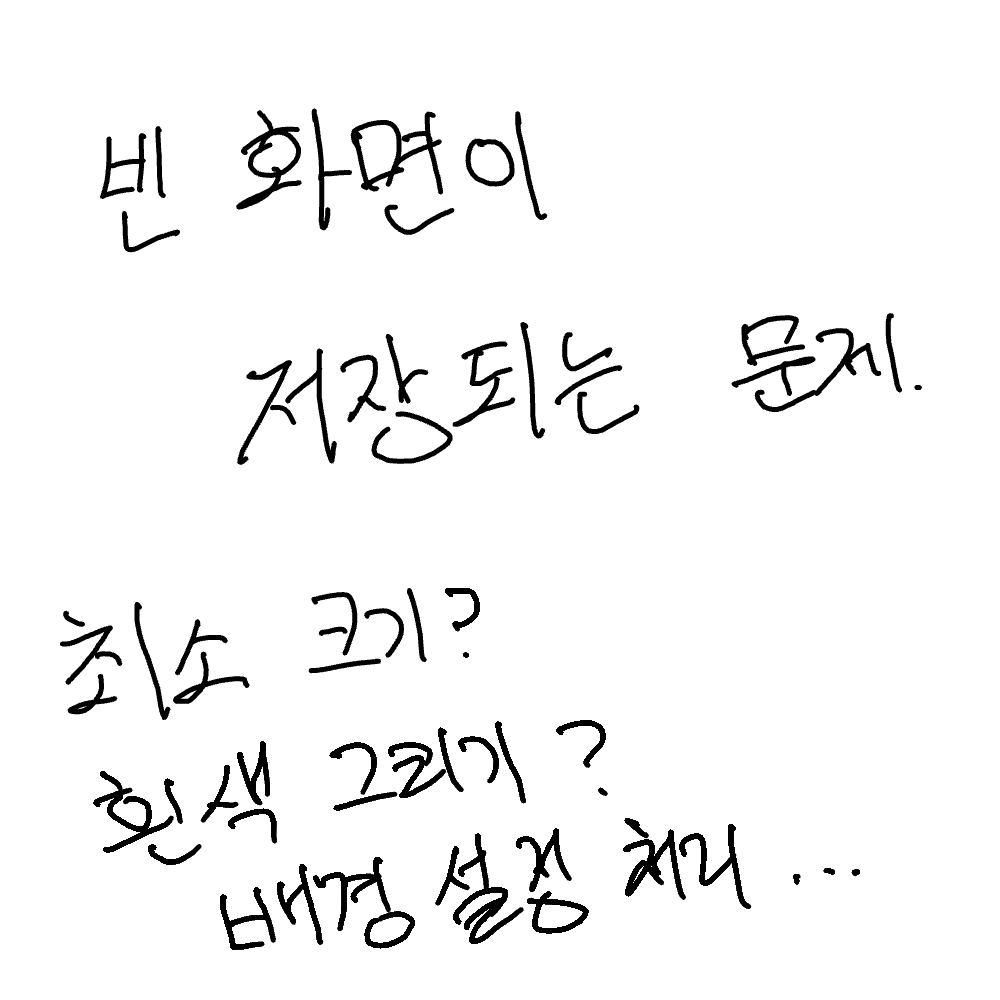 빈 화면이
저장되는 문제.
최소 크기?
흰색 그리기?
배경 설정 처리...